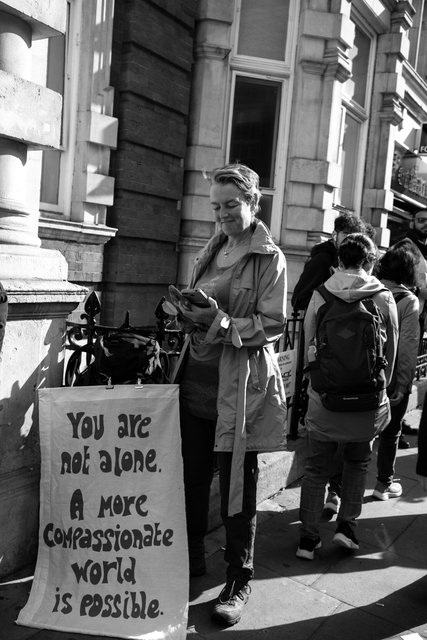 You are
not alone.
A more
compassionate
world
is possible.